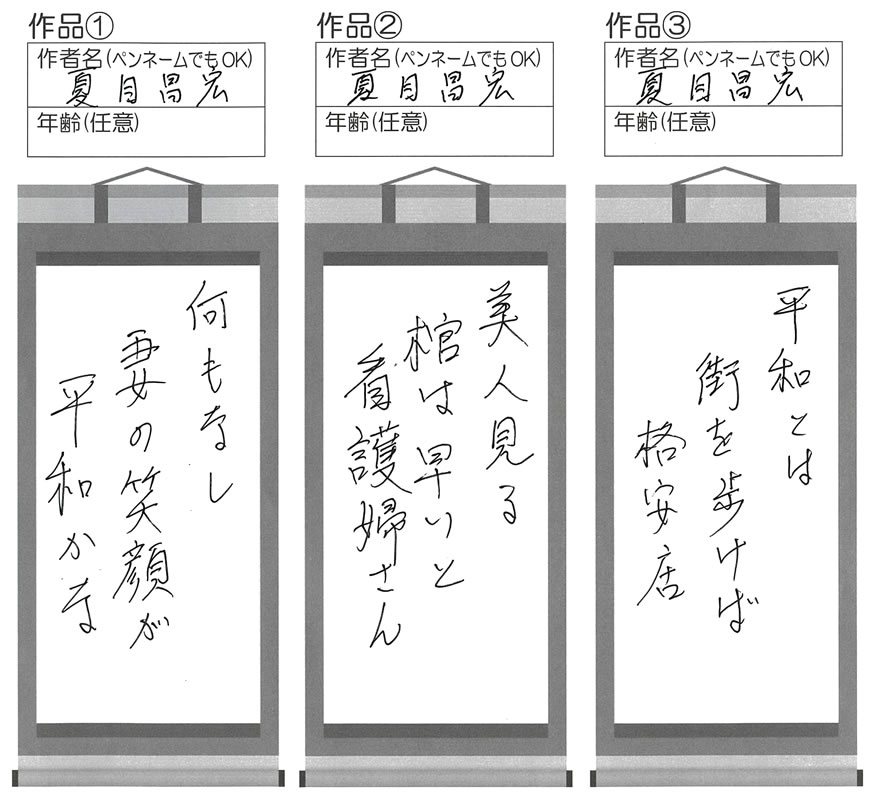 作品①
作者名(ペンネームでもOK)
夏目昌宏
年齢(任意)
何もなし
妻の笑顔が
平和かな
作品②
作者名(ペンネームでもOK)
夏目昌宏
年齢(任意)
美人見る
棺は早いと
看護婦さん
作品③
作者名(ペンネームでもOK)
夏目昌宏
年齢(任意)
平和とは
街を歩けば
格安店